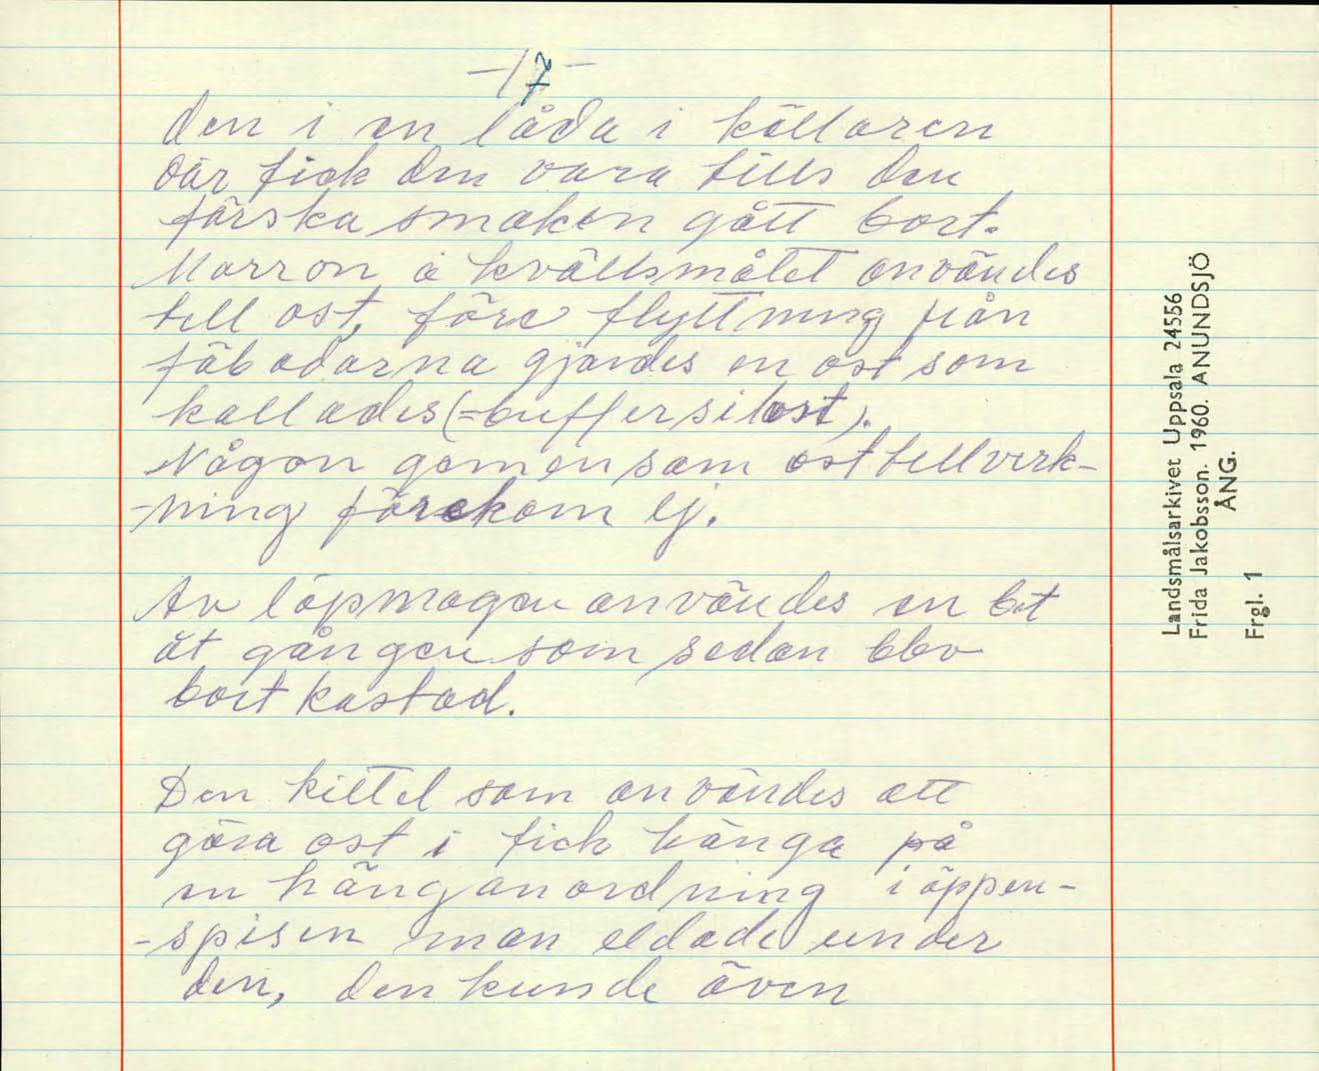 -17-
den i en låda i källaren
där fick den vara tills den
färska smaken gått bort.
Morron å kvällsmålet användes
till ost, före flyttning från
fäbodarna gjordes en ost som
kallades (=buffersilost).
Någon gemensam osttillverk-
-ning förekom ej.
Av löpmagen användes en bit
åt gången som sedan blev
bort kastad.
Den kittel som användes att
göra ost i fick hänga på
en hänganordning i öppen-
-spisen man eldade under
den, den kunde även
Landsmålsarkivet Uppsala 24556
Frida Jakobsson. 1960. ANUNDSJÖ
ÅNG.
Frgl. 1